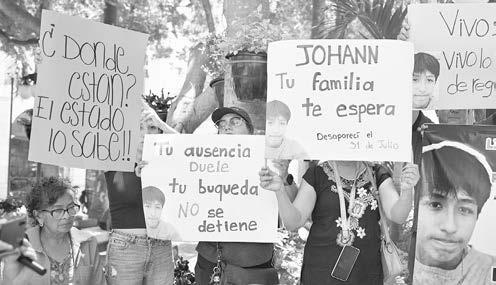 ¿Donde
estan?
El estado
lo sabe!!
Tu ausencia
Duele
tu buqueda
NO se
detiene
JOHANN
Tu familia
te espera
Desaparecí el
31 de Julio
Vivo
Vivo lo
de